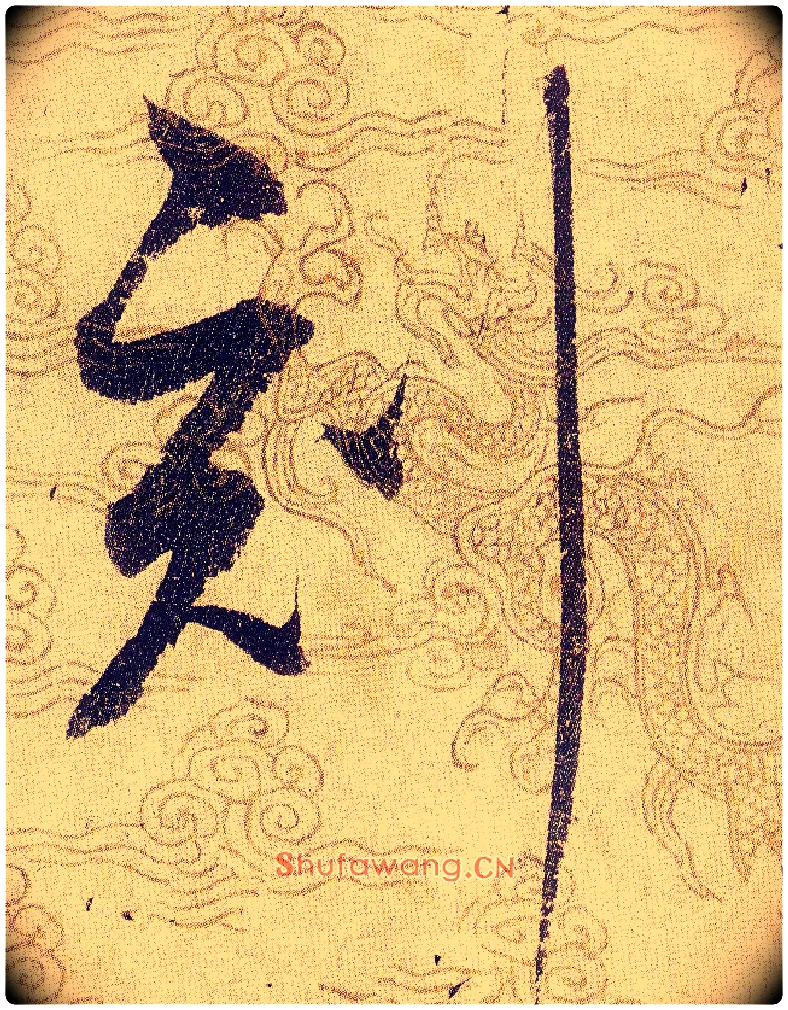 刻
Shufawang.CN